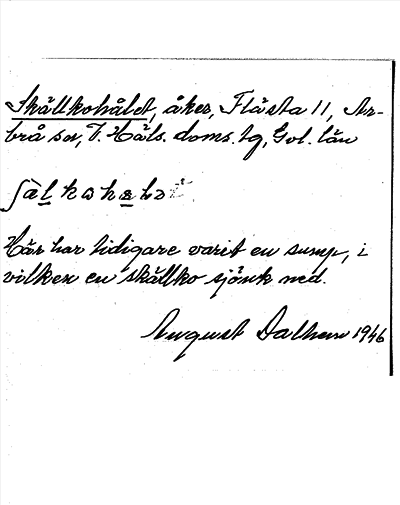 Skällkohålet, åker, Flästa 11, Ar-
brå sn, V. Häls. doms. tg, Gvl. län
Här har tidigare varit en sump, i
vilken en skällko sjönk ned.
August Dalhem 1946